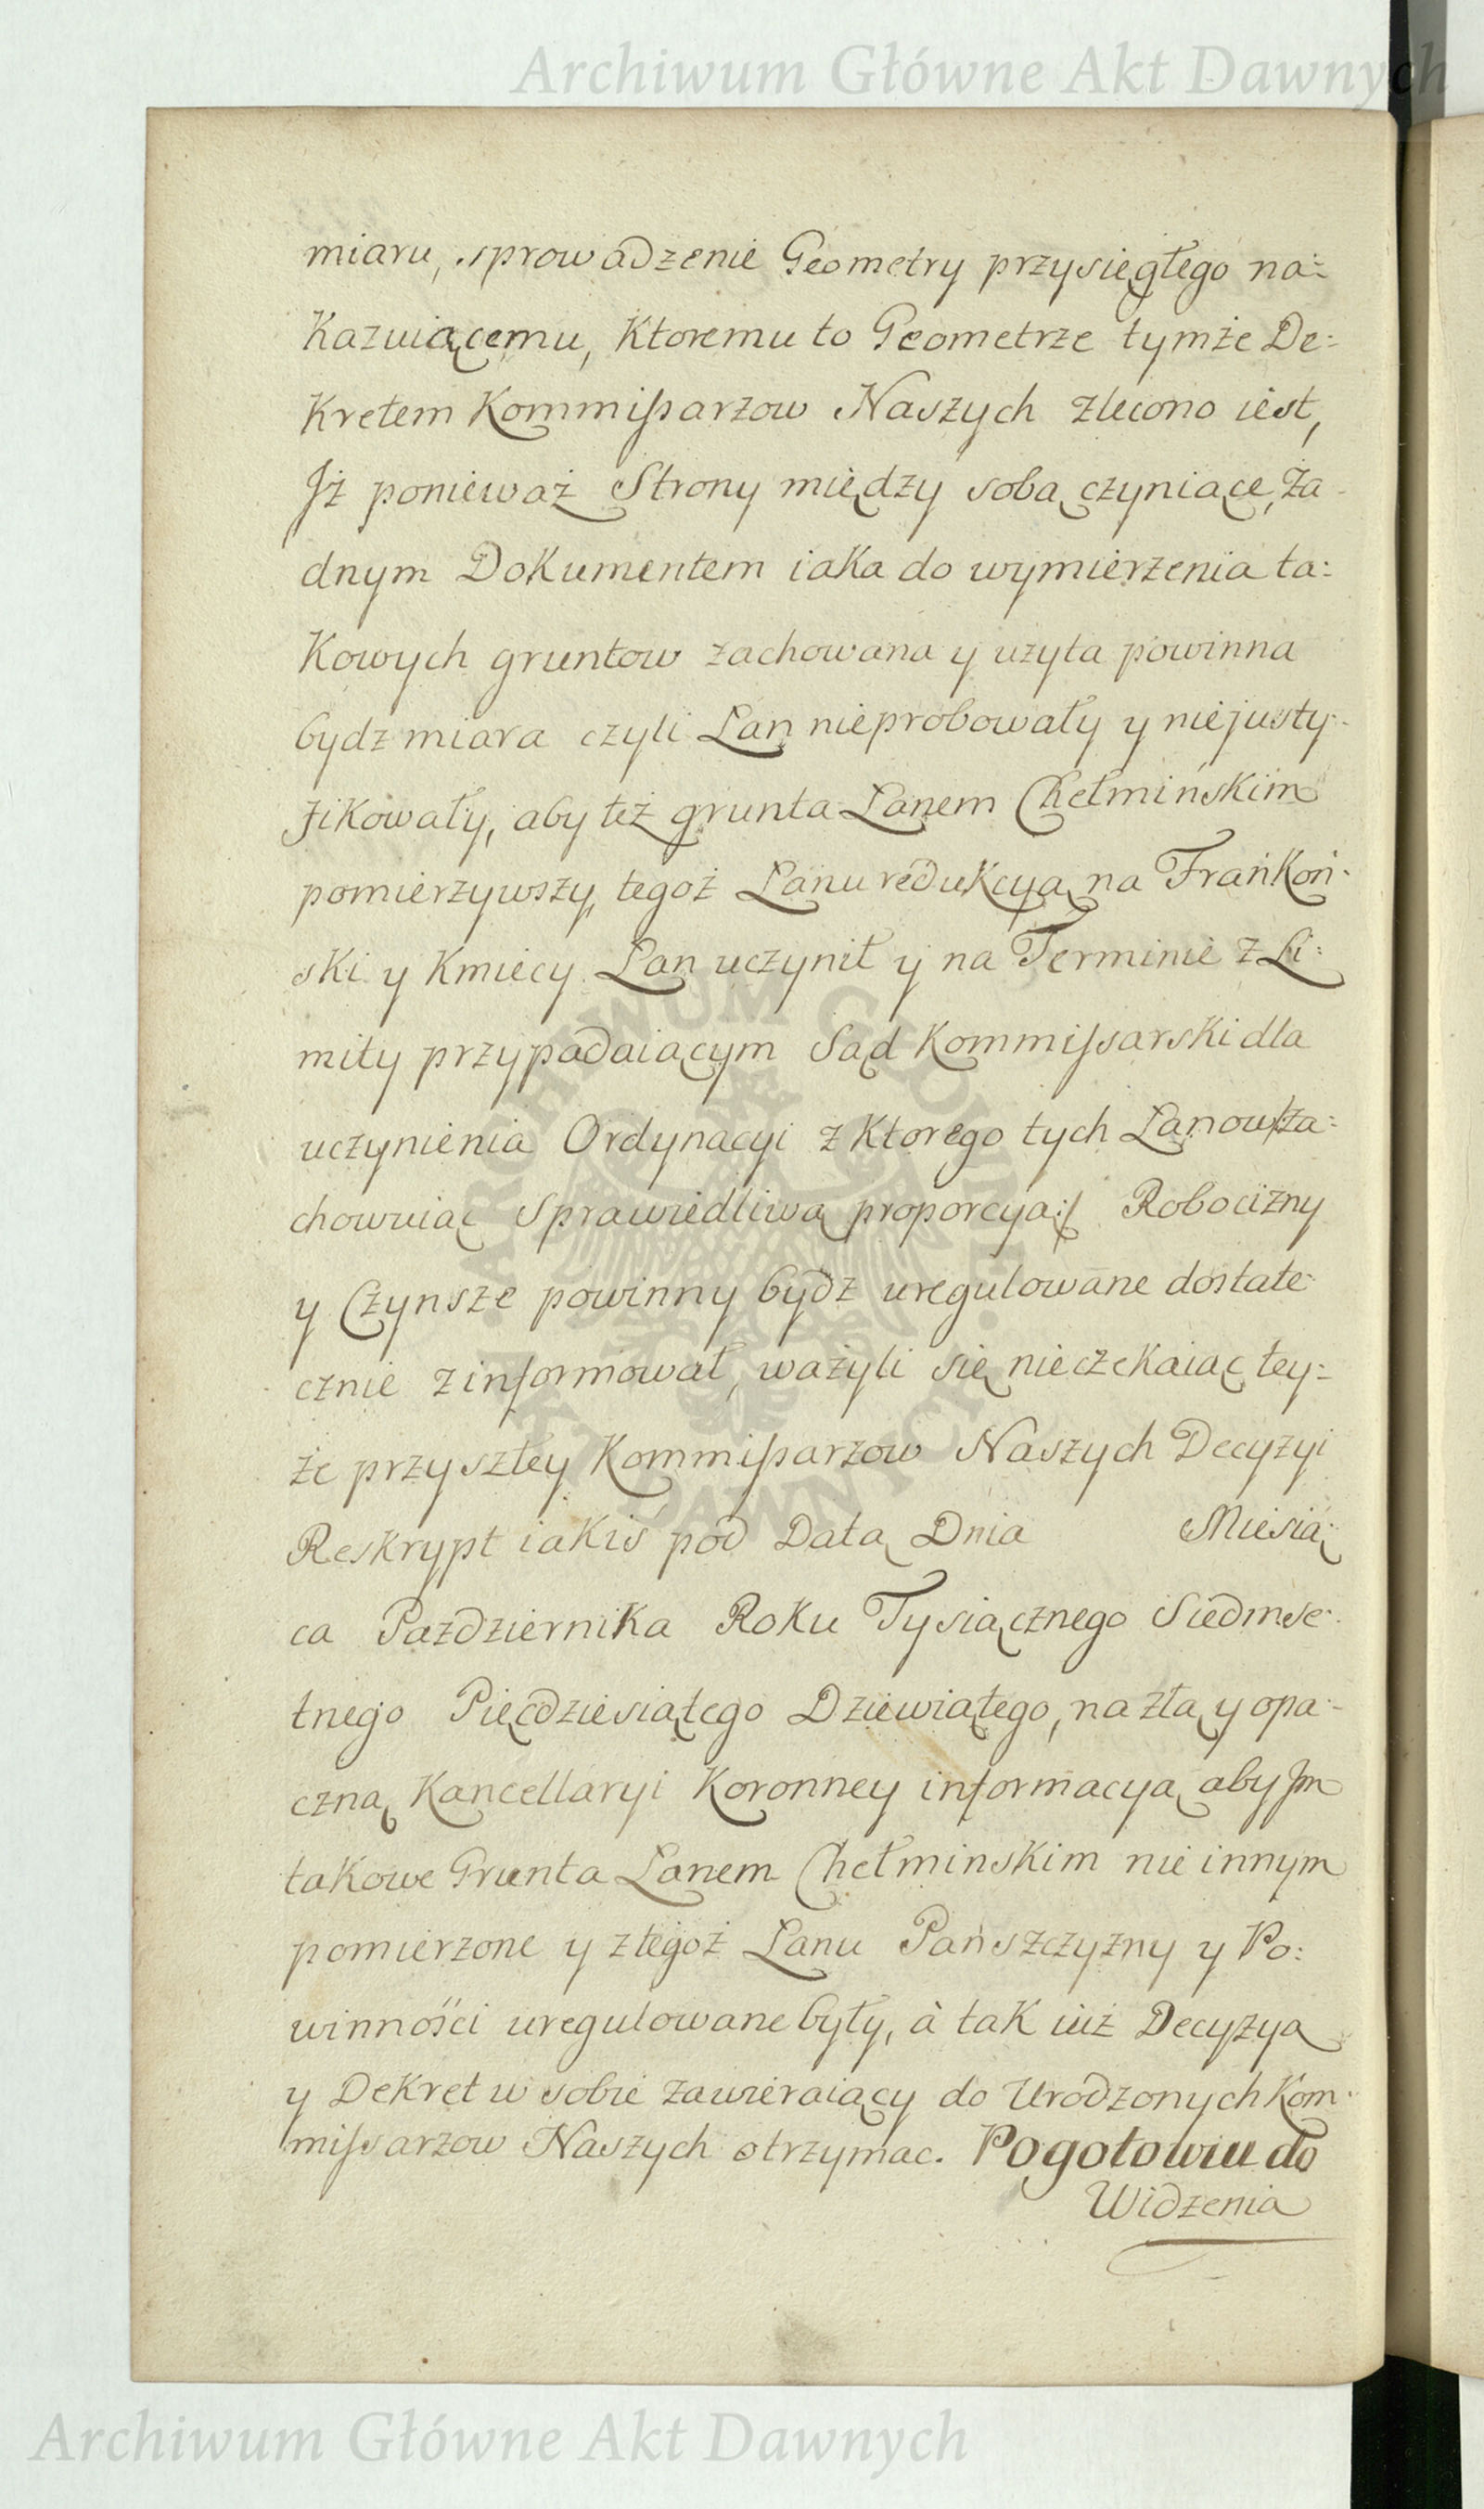 Archiwum Główne Akt Dawnych
miaru, sprowadzenie Geometry przysięgłego na=
Kazuiącemu, Ktoremu to Geometrze tymże De=
Kretem Kommissarzow Naszych zlecono iest,
Iż ponieważ Strony między sobą czyniące, ża-
dnym Dokumentem iaka do wymierzenia ta=
Kowych gruntow zachowana y użyta powinna
bydz miara czyli Łan nieprobowały y niejusty-
fikowały, aby też grunta Łanem Chełmińskim
pomierzywszy, tegoż Łanu redukcyą na Frankoń-
ski y Kmiecy Łan uczynił y na Terminie z Li=
mity przypadaiącym Sąd Kommissarski dla
uczynienia Ordynacyi z Ktorego tych Łanow /:za=
chowuiąc Sprawiedliwą proporcyą:/ Robocizny
y Czynsze powinny bydz uregulowane dostate-
cznie zinformował, ważyli się nieczekaiąc tey=
że przyszłey Kommissarzow Naszych Decyzyi
Reskrypt iakiś pod Datą Dnia Miesią-
ca Pazdziernika Roku Tysiącznego Siedmse-
tnego Pięcdziesiątego Dziewiątego, na złą y opa-
czną Kancellaryi Koronney informacyą aby Im
takowe Grunta Łanem Chełminskim nie innym
pomierzone y z tegoż Łanu Pańszczyzny y Po=
winności uregulowane były, à tak iuż Decyzya
y Dekret w sobie zawieraiący do Urodzonych Kom-
missarzow Naszych otrzymac. Pogotowiu do
Widzenia
ARCHIWUM GŁÓWNE AKT DAWNYCH
Archiwum Główne Akt Dawnych